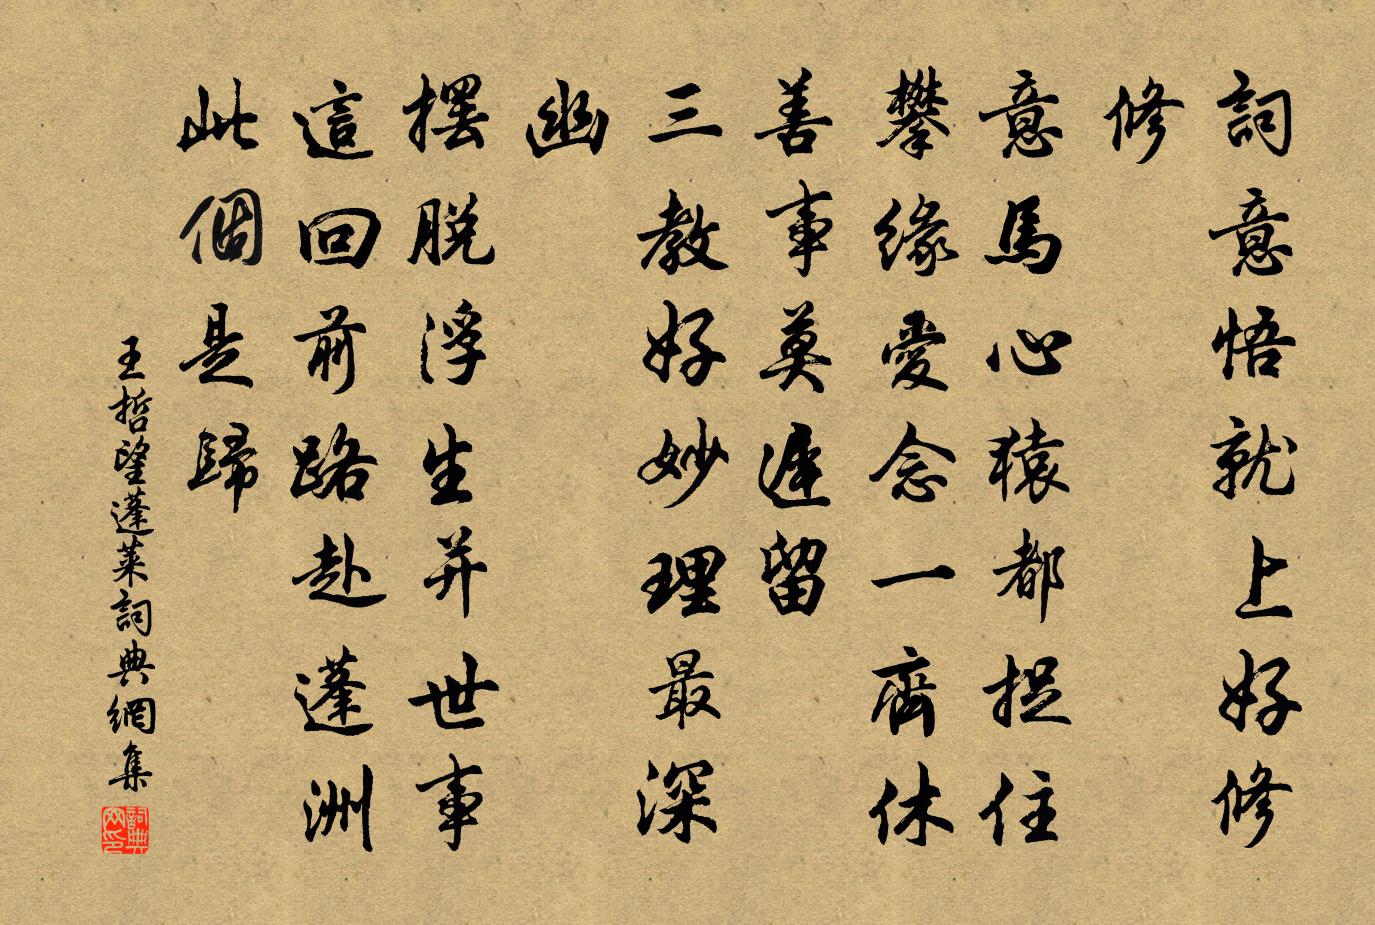 詞意悟就上好修
修
意馬心猿都捉住
攀緣愛念一齊休
善事莫遲留
三教好妙理最深
幽
擺脫浮生并世事
這回前路赴蓬洲
此個是歸
王哲望蓬萊詞典網集
詞典
网印